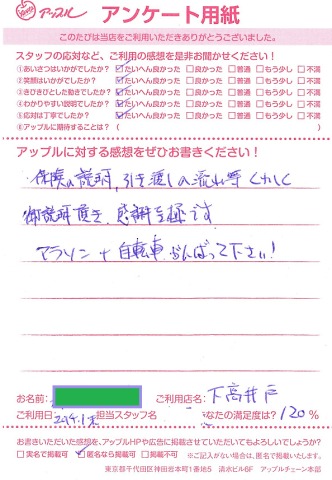 アップル アンケート用紙
このたびは当店をご利用いただきありがとうございました。
スタッフの応対など、ご利用の感想を是非お聞かせください!
①あいさつはいかがでしたか? ☑たいへん良かった □良かった □普通 □もう少し □不満
②笑顔はいかがでしたか? ☑たいへん良かった □良かった □普通 □もう少し □不満
③きびきびとした動きでしたか? ☑たいへん良かった □良かった □普通 □もう少し □不満
④わかりやすい説明でしたか? ☑たいへん良かった □良かった □普通 □もう少し □不満
⑤応対は丁寧でしたか? ☑たいへん良かった □良かった □普通 □もう少し □不満
⑥アップルに期待することは? (
アップルに対する感想をぜひお書きください!
・保険の説明,引き渡しの流れ等くわしく
御説明頂き、感謝です
マラソン+自転車がんばって下さい!
お名前: ご利用店名: 下高井戸
ご利用日 2019.1.末 担当スタッフ名 あなたの満足度は? 120%
お書きいただいた感想を、アップルHPや広告に掲載させていただいてもよろしいでしょうか?
□実名で掲載可 ☑匿名なら掲載可 □掲載不可 ※ご記入がない場合は、匿名で掲載いたします。
東京都千代田区神田岩本町1番地5 清水ビル6F アップルチェーン本部